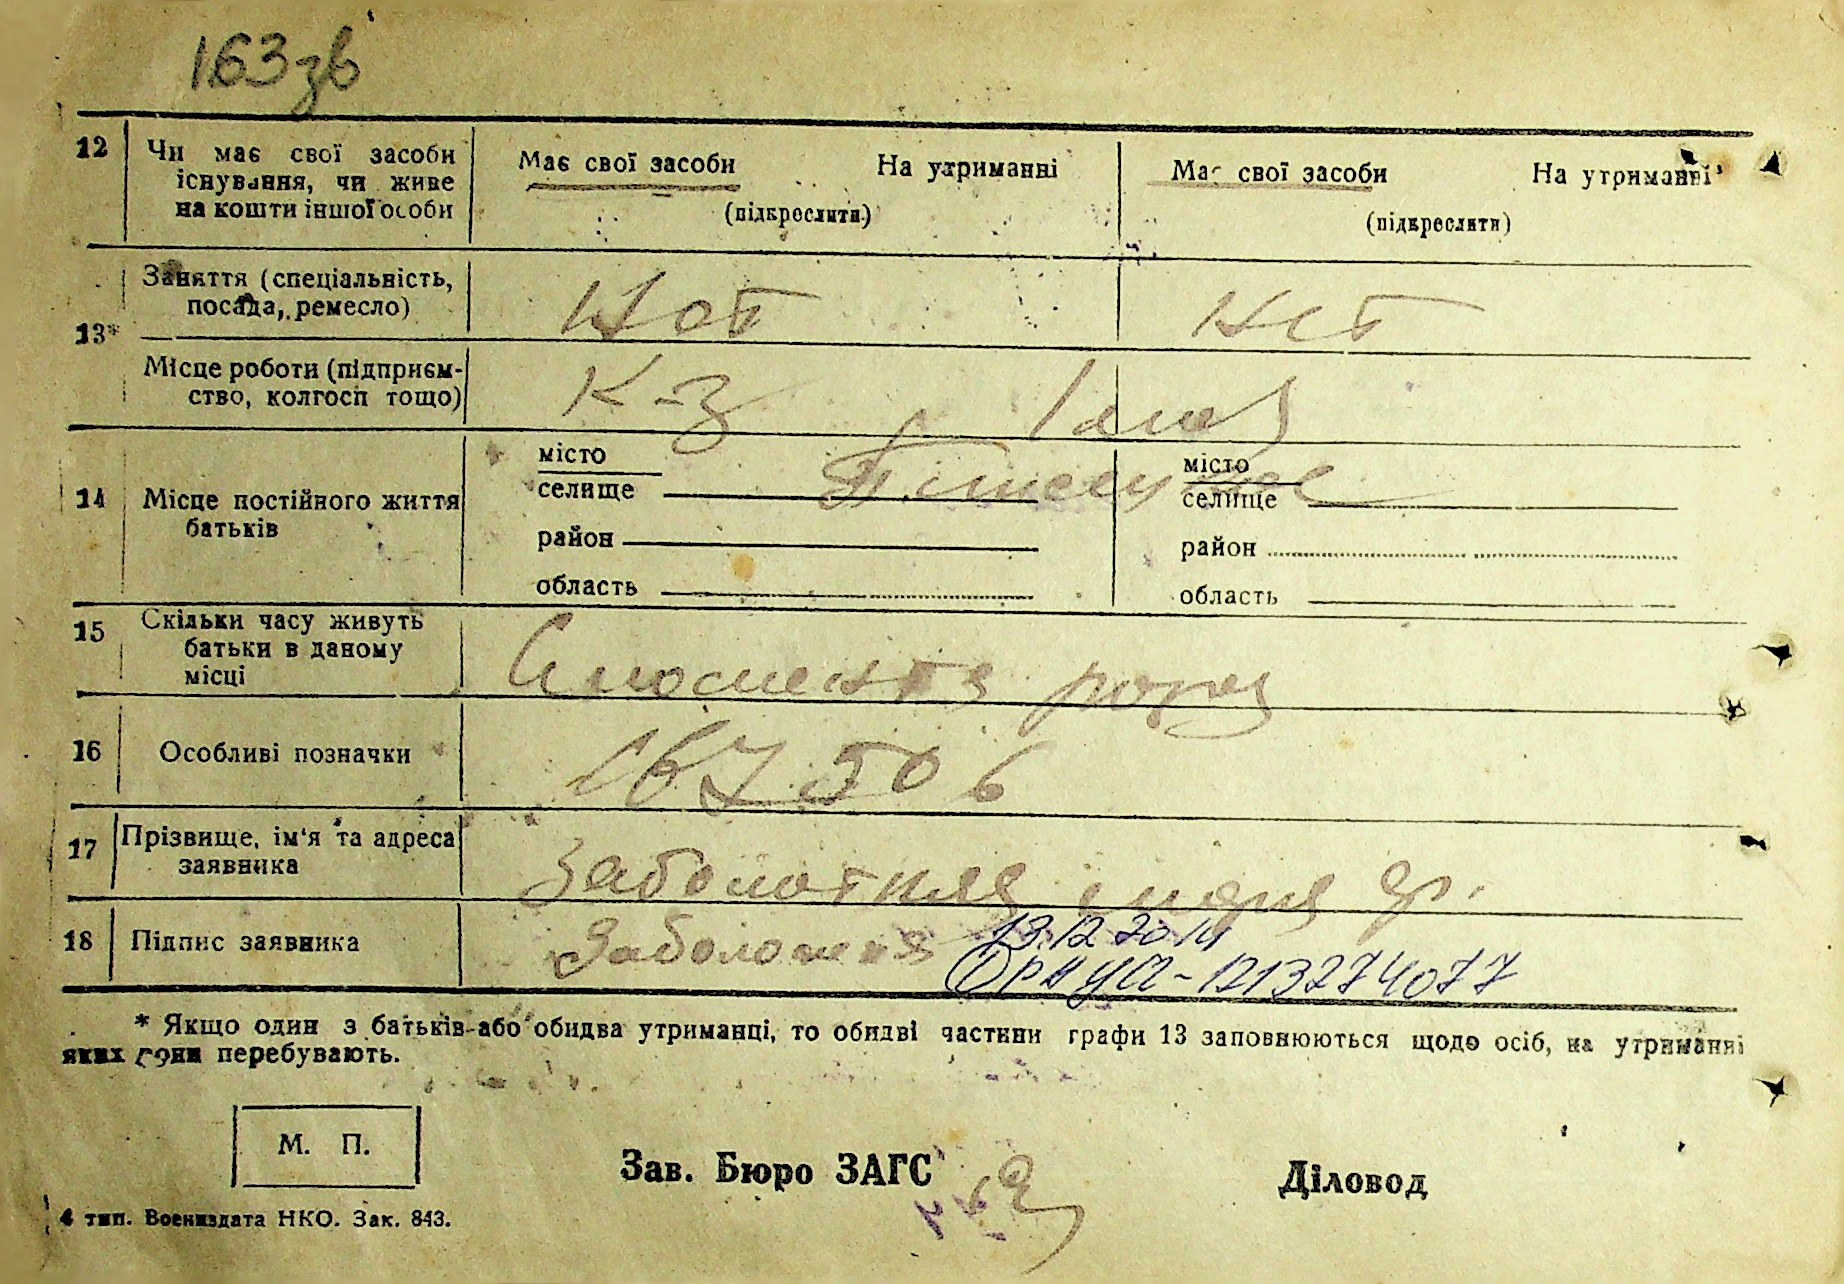 163зв
12 Чи має свої засоби існування, чи живе на кошти іншої особи
Має свої засоби На утриманні
(підкреслити)
Має свої засоби На утриманні
(підкреслити)
13* Заняття (спеціальність, посада, ремесло)
Місце роботи (підприємство, колгосп тощо)
К-з
14 Місце постійного життя батьків
місто
селище
район
область
місто
селище
район
область
15 Скільки часу живуть батьки в даному місці
16 Особливі позначки
17 Прізвище, ім'я та адреса заявника
Заболотная
18 Підпис заявника
13.12 2014
1213274077
* Якщо один з батьків або обидва утриманці, то обидві частини графи 13 заповнюються щодо осіб, на утриманні
яких вони перебувають.
М. П.
Зав. Бюро ЗАГС
Діловод
4 тип. Воениздата НКО. Зак. 843.